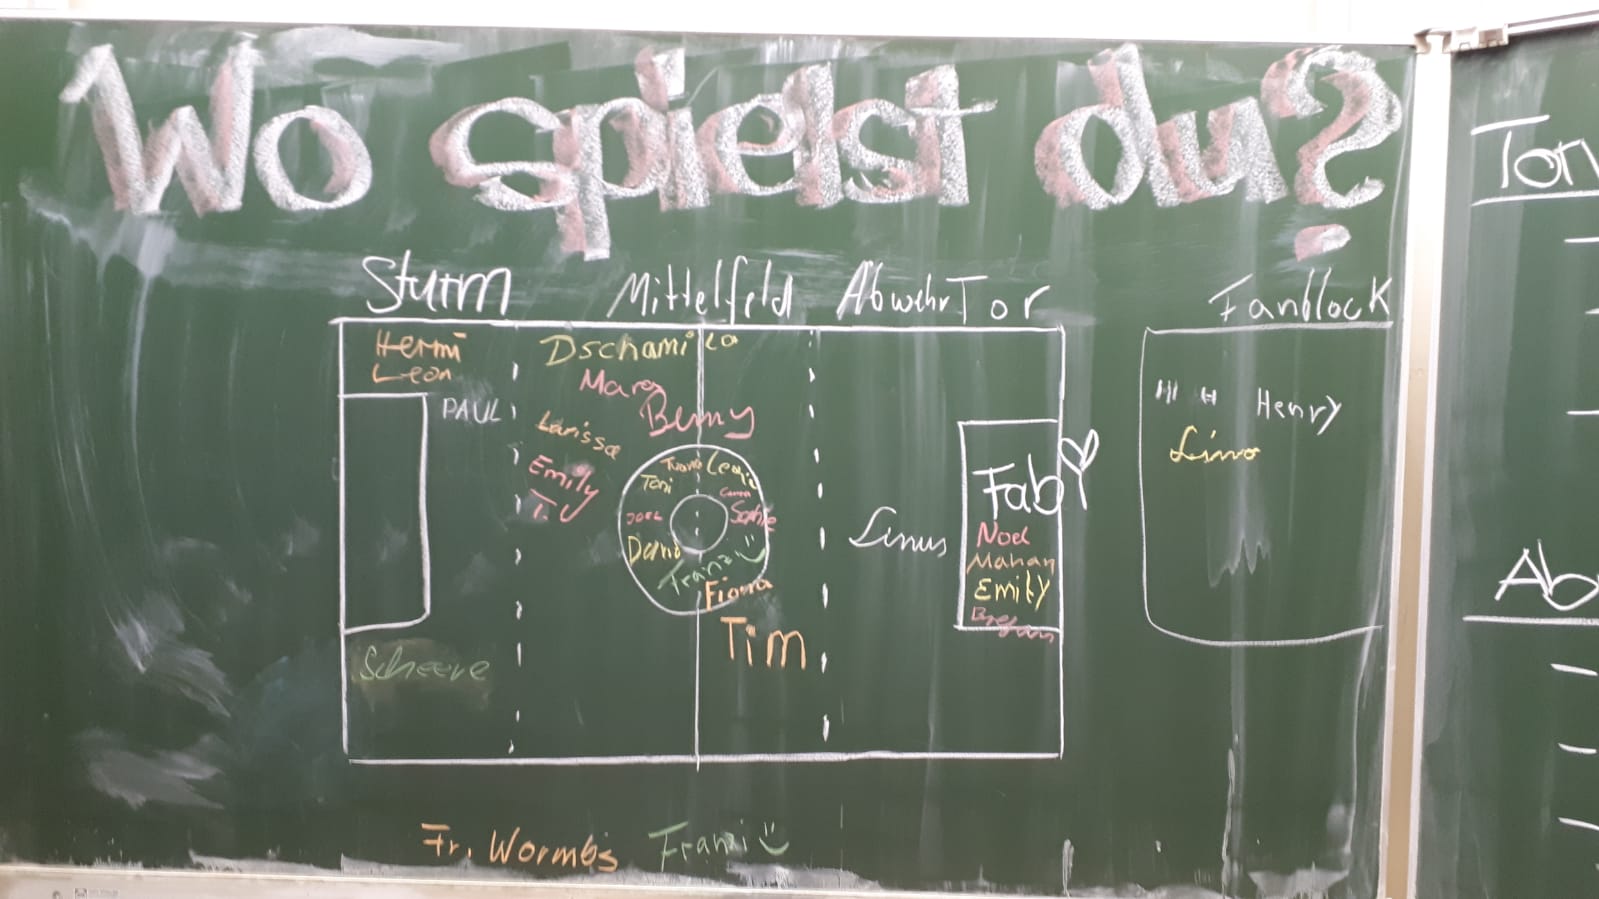 Wo spielst du?
Sturm Mittelfeld Abwehr Tor Fanblock
Hermi
Leon
PAUL
Scheeve
Dschamila
Marc
Benny
Larissa
Emily
T.
Toni
JOEL
Sophie
Franzi
Fiona
Tim
Linus
Fabi
Noel
Mahan
Emily
Henry
Lino
Fr. Wormbs Franzi
Ton
Ab